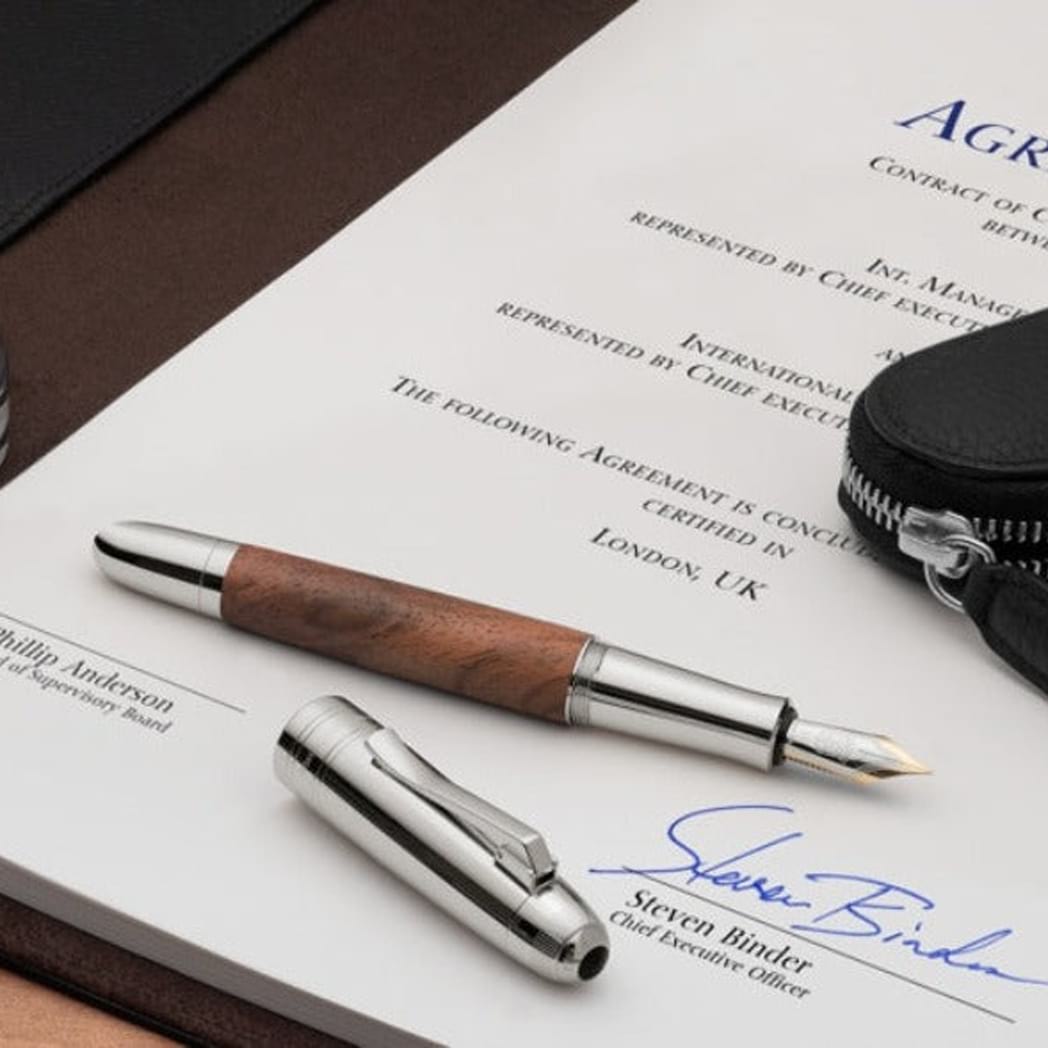 AGR
CONTRACT OF C
BETWE
INT. MANAGE
REPRESENTED BY CHIEF EXECUT
AN
INTERNATIONAL
REPRESENTED BY CHIEF EXECUT
THE FOLLOWING AGREEMENT IS CONCLU
CERTIFIED IN
LONDON, UK
Phillip Anderson
d of Supervisory Board
Steven Binder
Steven Binder
Chief Executive Officer